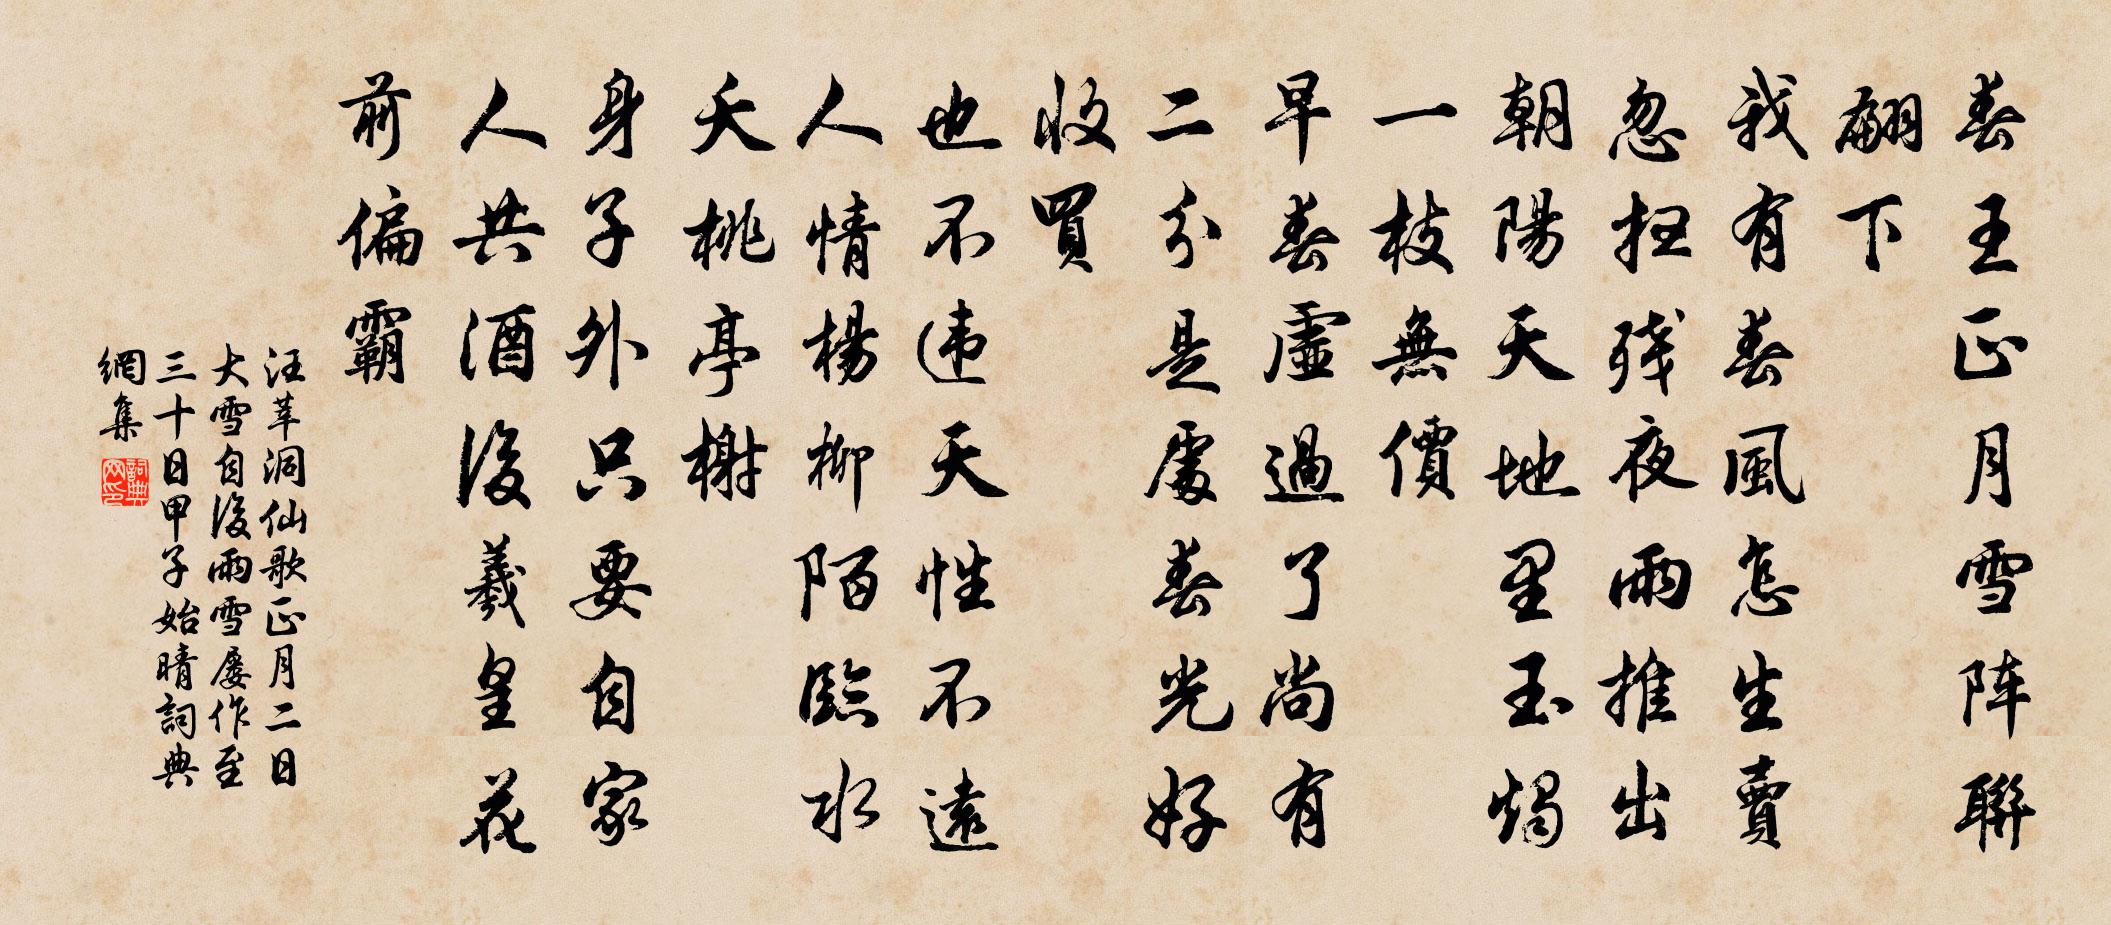 春王正月雪阵聯
翩下
我有春風怎生賣
忽扫残夜雨推出
朝陽天地里玉燭
一枝無價
早春虛過了尚有
二分是處春光好
收買
也不违天性不遠
人情楊柳陌臨水
夭桃亭榭
身子外只要自家
人共酒後羲皇花
前偏霸
汪莘洞仙歌正月二日
大雪自後雨雪屡作至
三十日甲子始晴詞典
網集
詞典网印